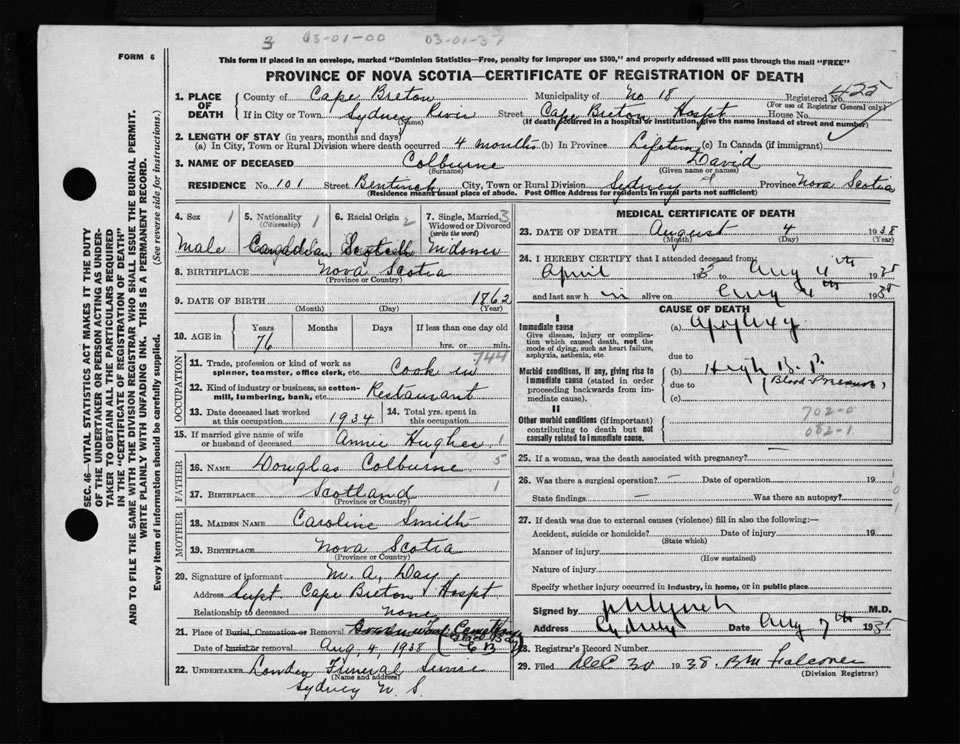 3 03-01-00 03-01-37
FORM 6
This form if placed in an envelope, marked "Dominion Statistics—Free, penalty for improper use $300," and properly addressed will pass through the mail "FREE"
PROVINCE OF NOVA SCOTIA—CERTIFICATE OF REGISTRATION OF DEATH
SEC. 46—VITAL STATISTICS ACT MAKES IT THE DUTY
OF THE UNDERTAKER OR PERSON ACTING AS UNDER-
TAKER TO OBTAIN ALL THE PARTICULARS REQUIRED
IN THE "CERTIFICATE OF REGISTRATION OF DEATH"
AND TO FILE THE SAME WITH THE DIVISION REGISTRAR WHO SHALL ISSUE THE BURIAL PERMIT.
WRITE PLAINLY WITH UNFADING INK. THIS IS A PERMANENT RECORD.
Every item of information should be carefully supplied. (See reverse side for instructions.)
1. PLACE OF DEATH County of Cape Breton Municipality of No 18 Registered No. 425
(For use of Registrar General only)
If in City or Town Sydney River Street Cape Breton Hospt House No.
(Name) (If death occurred in a hospital or institution, give the name instead of street and number)
2. LENGTH OF STAY (in years, months and days)
(a) In City, Town or Rural Division where death occurred 4 months (b) In Province Lifetime (c) In Canada (if immigrant)
3. NAME OF DECEASED Colburne David
(Surname) (Given name or names)
RESIDENCE No. 101 Street Bentinck City, Town or Rural Division Sydney Province Nova Scotia
(Residence means usual place of abode. Post Office Address for residents in rural parts not sufficient)
4. Sex 1 5. Nationality (Citizenship) 1 6. Racial Origin 2 7. Single, Married, Widowed or Divorced (write the word) 3
Male Canadian Scotch Widower
8. BIRTHPLACE Nova Scotia
(Province or Country)
9. DATE OF BIRTH 1862
(Month) (Day) (Year)
10. AGE in Years Months Days If less than one day old
76 hrs. or min.
OCCUPATION
11. Trade, profession or kind of work as spinner, teamster, office clerk, etc. Cook in 744
12. Kind of industry or business, as cotton-mill, lumbering, bank, etc. Restaurant
13. Date deceased last worked at this occupation 1934 14. Total yrs. spent in this occupation
15. If married give name of wife or husband of deceased Annie Hughes 1
FATHER
16. NAME Douglas Colburne 5
17. BIRTHPLACE Scotland 1
(Province or Country)
MOTHER
18. MAIDEN NAME Caroline Smith
19. BIRTHPLACE Nova Scotia
(Province or Country)
20. Signature of informant M. A. Day
Address Supt. Cape Breton Hospt
Relationship to deceased none
21. Place of Burial, Cremation or Removal
Date of burial or removal Aug. 4, 1938
22. UNDERTAKER Funeral Service
(Name and address)
Sydney N. S.
MEDICAL CERTIFICATE OF DEATH
23. DATE OF DEATH August 4 1938
(Month) (Day) (Year)
24. I HEREBY CERTIFY that I attended deceased from:
April 193 Aug 4th 1938
and last saw him alive on Aug 4th 1938
CAUSE OF DEATH
I
Immediate cause (a) Apoplexy
Give disease, injury or complication which caused death, not the mode of dying, such as heart failure, asphyxia, asthenia, etc.
due to
Morbid conditions, if any, giving rise to Immediate cause (stated in order proceeding backwards from immediate cause). (b) High B. P.
due to (Blood Pressure)
(c)
II
Other morbid conditions (if important) contributing to death but not causally related to Immediate cause.
702-0
082-1
25. If a woman, was the death associated with pregnancy? —
26. Was there a surgical operation? — Date of operation 19
State findings — Was there an autopsy?
27. If death was due to external causes (violence) fill in also the following:—
Accident, suicide or homicide? Date of injury 19
(State which)
Manner of injury
(How sustained)
Nature of injury
Specify whether injury occurred in industry, in home, or in public place
Signed by Lynch M.D.
Address Sydney Date Aug 7th 1938
28. Registrar's Record Number
29. Filed Dec 30 1938 Falconer
(Division Registrar)